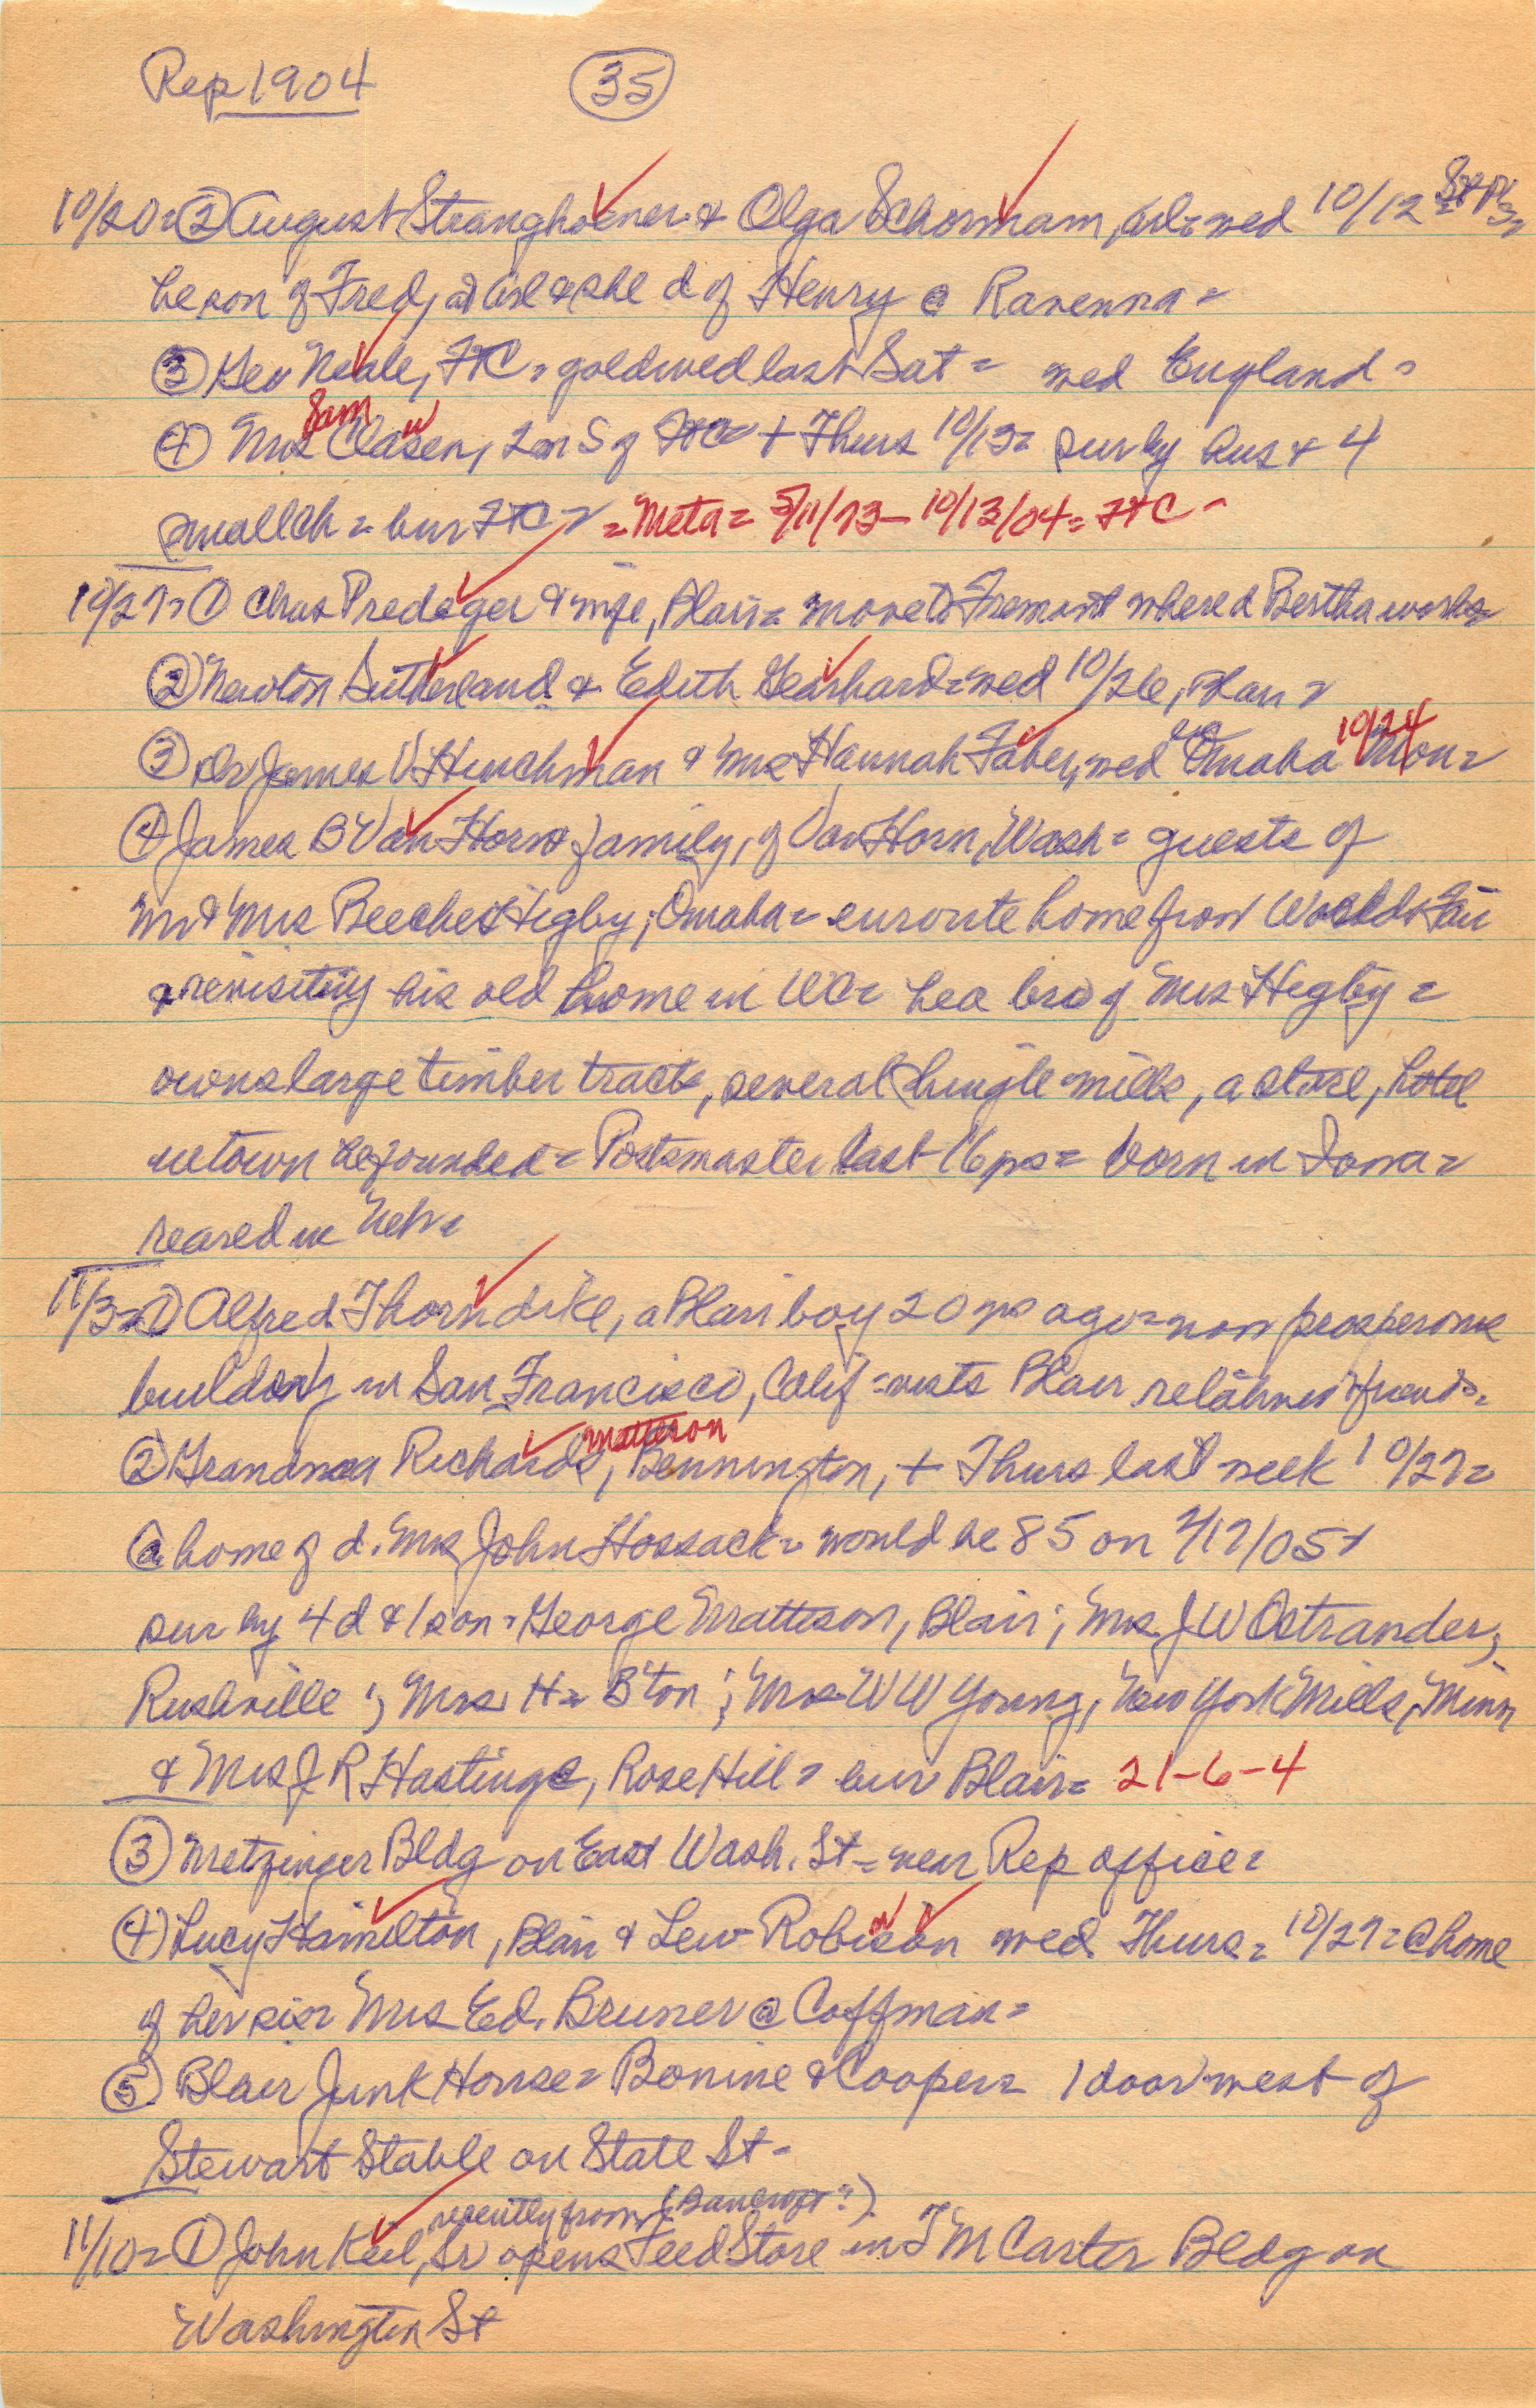 Rep 1904 (35)
10/20= (2) August Stranghoener & Olga Schormann, Arl= wed 10/12= St P's=
he son of Fred, at Arl & she d of Henry @ Ravenna=
(3) Geo Neale, FTC= gold wed last Sat= wed England=
Sam w
(4) Mrs Clasen, 2m S of FTC + Thurs 10/13= sur by hus & 4
small ch= bur FTC= = Meta= 5/11/73- 10/13/04= FTC-
10/27= (1) Chas Predeger & wife, Blair= move to Fremont where d Bertha works=
(2) Newton Sutherland & Edith Gearhard= wed 10/26, Blair=
(3) Dr James V Hinchman & Mrs Hannah Faber, wed Omaha Mon= 10/24
(4) James B Van Horn & family, of Van Horn, Wash= guests of
Mr & Mrs Beecher Higby, Omaha= enroute home from Worlds Fair
& revisiting his old home in WC= he a bro of Mrs Higby=
owns large timber tracts, several shingle mills, a store, hotel
in town he founded= Postmaster last 16 yrs= born in Iowa=
reared in Neb=
11/3= (1) Alfred Thorndike, a Blair boy 20 yrs ago= now prosperous
building in San Francisco, Calif= visits Blair relatives & friends=
matteson
(2) Grandma Richards, Bennington, + Thurs last week 10/27=
@ home of d. Mrs John Hossack= would be 85 on 2/17/05+
sur by 4 d & 1 son= George Matteson, Blair; Mrs. J W Ostrander,
Rushville; Mrs H= B'ton; Mrs W W Young, New York Mills, Minn
& Mrs J R Hastings, Rose Hill= bur Blair= 21-6-4
(3) Metzinger Bldg on East Wash. St= near Rep office=
(4) Lucy Hamilton, Blair & Lew Robison wed Thurs= 10/27= @ home
of her sis= Mrs Ed. Bruner @ Coffman=
(5) Blair Junk House= Bonine & Cooper= 1 door west of
Stewart Stable on State St-
recently from (Bancroft?)
11/10= (1) John Keil, Sr opens Feed Store in T M Carter Bldg on
Washington St